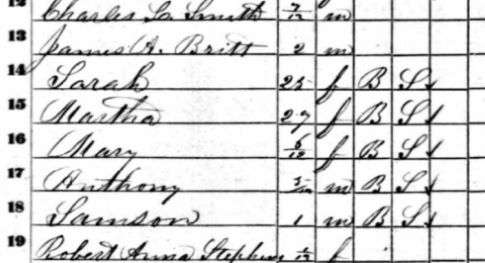 12 Charles L. Smith 7/12 m
13 James A. Britt 2 m
14 Sarah 25 f B S
15 Martha 27 f B S
16 Mary /12 f B S
17 Anthony m B S
18 Samson 1 m B S
19 Robert Anna Stephens /12 f